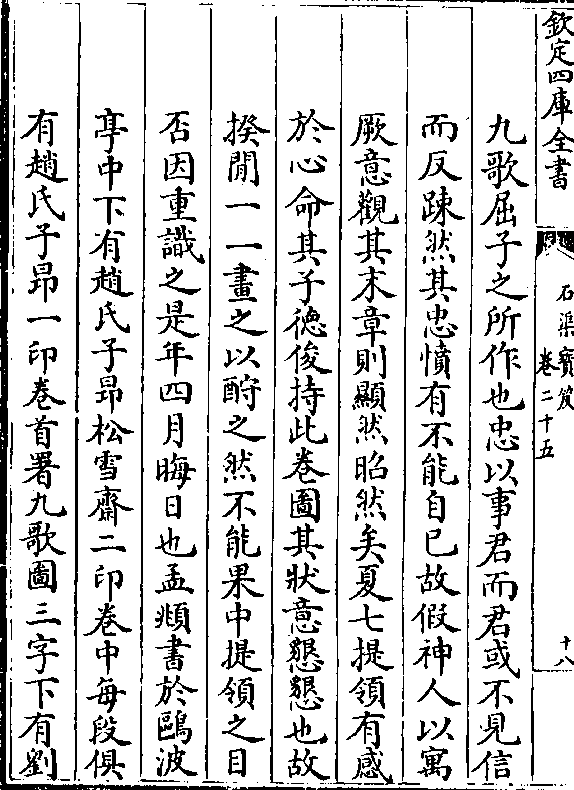 欽定四庫全書
石渠寳笈
卷二十五
十八
九歌屈子之所作也忠以事君而君或不見信
而反踈然其忠憤有不能自已故假神人以寓
厥意觀其末章則顯然昭然矣夏七提領有感
於心命其子德俊持此卷圖其狀意懇懇也故
揆閒一一畫之以酧之然不能果中提領之目
否因重識之是年四月晦日也孟頫書於鷗波
亭中下有趙氏子昂松雪齋二印卷中每段俱
有趙氏子昂一印卷首署九歌圖三字下有劉